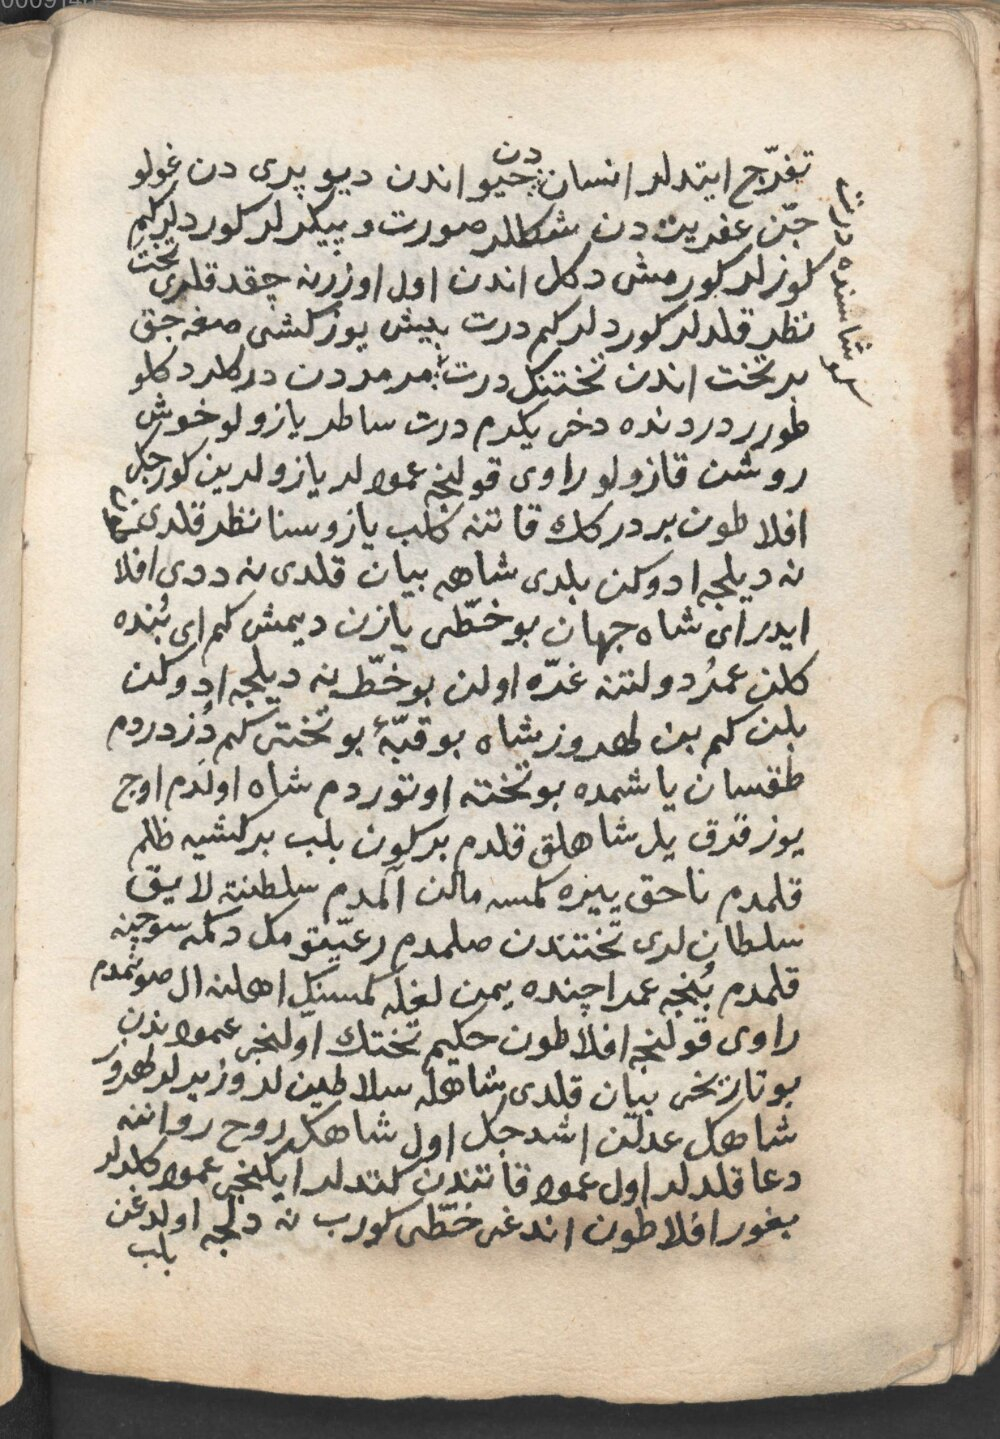 تفرّج ايتدلر انسان دن حيو اندن ديو پرى دن غولو
جنّ عفريت دن شكللر صورت و پيكرلر كوردلركم
كوزلر كورمش دكل اندن اول اوزرنه چقدقلرى تخت
نظر قلدلر كوردلركم درت بيش يوز كشى صغه جق
بر تخت اندن تختنك درت مرمردن دركلر دكلو
طورر دردنده دخى يكرم درت ساطر يازولو خوش
روشن قازولو راوى قولنجه عمولر يازولرين كورجك
افلاطون بر درك قاتنه كلب يازوسنا نظر قلدى
نه ديلجه ادوكن بلدى شاهه بيان قلدى نه ددى افلا
ايدر اى شاه جهان بو خطّى يازن ديمش كم اى بُنده
كلن عمرُ دولتنه غرّه اولن بو خطّ نه ديلجه ادوكن
بلن كم بن لهروز شاه بو قبّهٔ بو تختى كم دُزدردم
طقسان ياشمده بو تخته اوتوردم شاه اولدم اوج
يوز قرق يل شاهلق قلدم بركون بلب بركشيه ظلم
قلمدم ناحق ييره كمسه مالن آلمدم سلطنته لايق
سلطانلرى تختندن صلمدم رعيّتومك دكمه سوچنه
قلمدم بُنجه عمر اچنده يمن لغله كمسنك اهلنه ال صونمدم
راوى قولنجه افلاطون حكيم تختك اوّلنجى عمولندن
بو تاريخى بيان قلدى شاهله سلاطين لر وزيرلر لهروز
شاهك عدلن اشدجك اول شاهك روح رواننه
دعا قلدلر اول عمود قاتندن كتدلر ايكنجى عموده كلدلر
بغور افلاطون اندغى خطّى كورب نه دلجه اولدغن
بلب